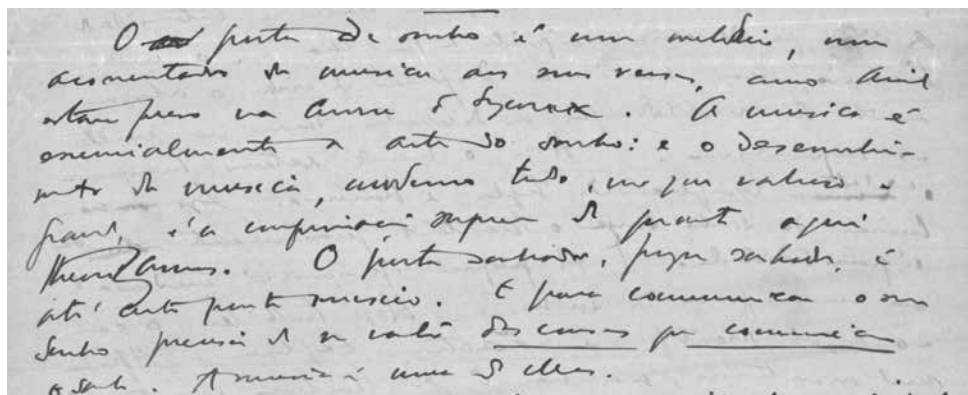 O poeta de sonho é um melodico, um
acorrentado da musica dos seus versos, como Ariel
estava preso na de Sycorax. A musica é
essencialmente a arte do sonho: e o desenvolvi-
mento da musica, moderno todo, no que valioso e
grande, é a confirmação suprema de quanto aqui
theorizamos. O poeta sonhador, porque sonhador, é
até certo ponto musico. E para communicar o seu
sonho precisa de se valer das cousas que communicam
o sonho. A musica é uma d'ellas.